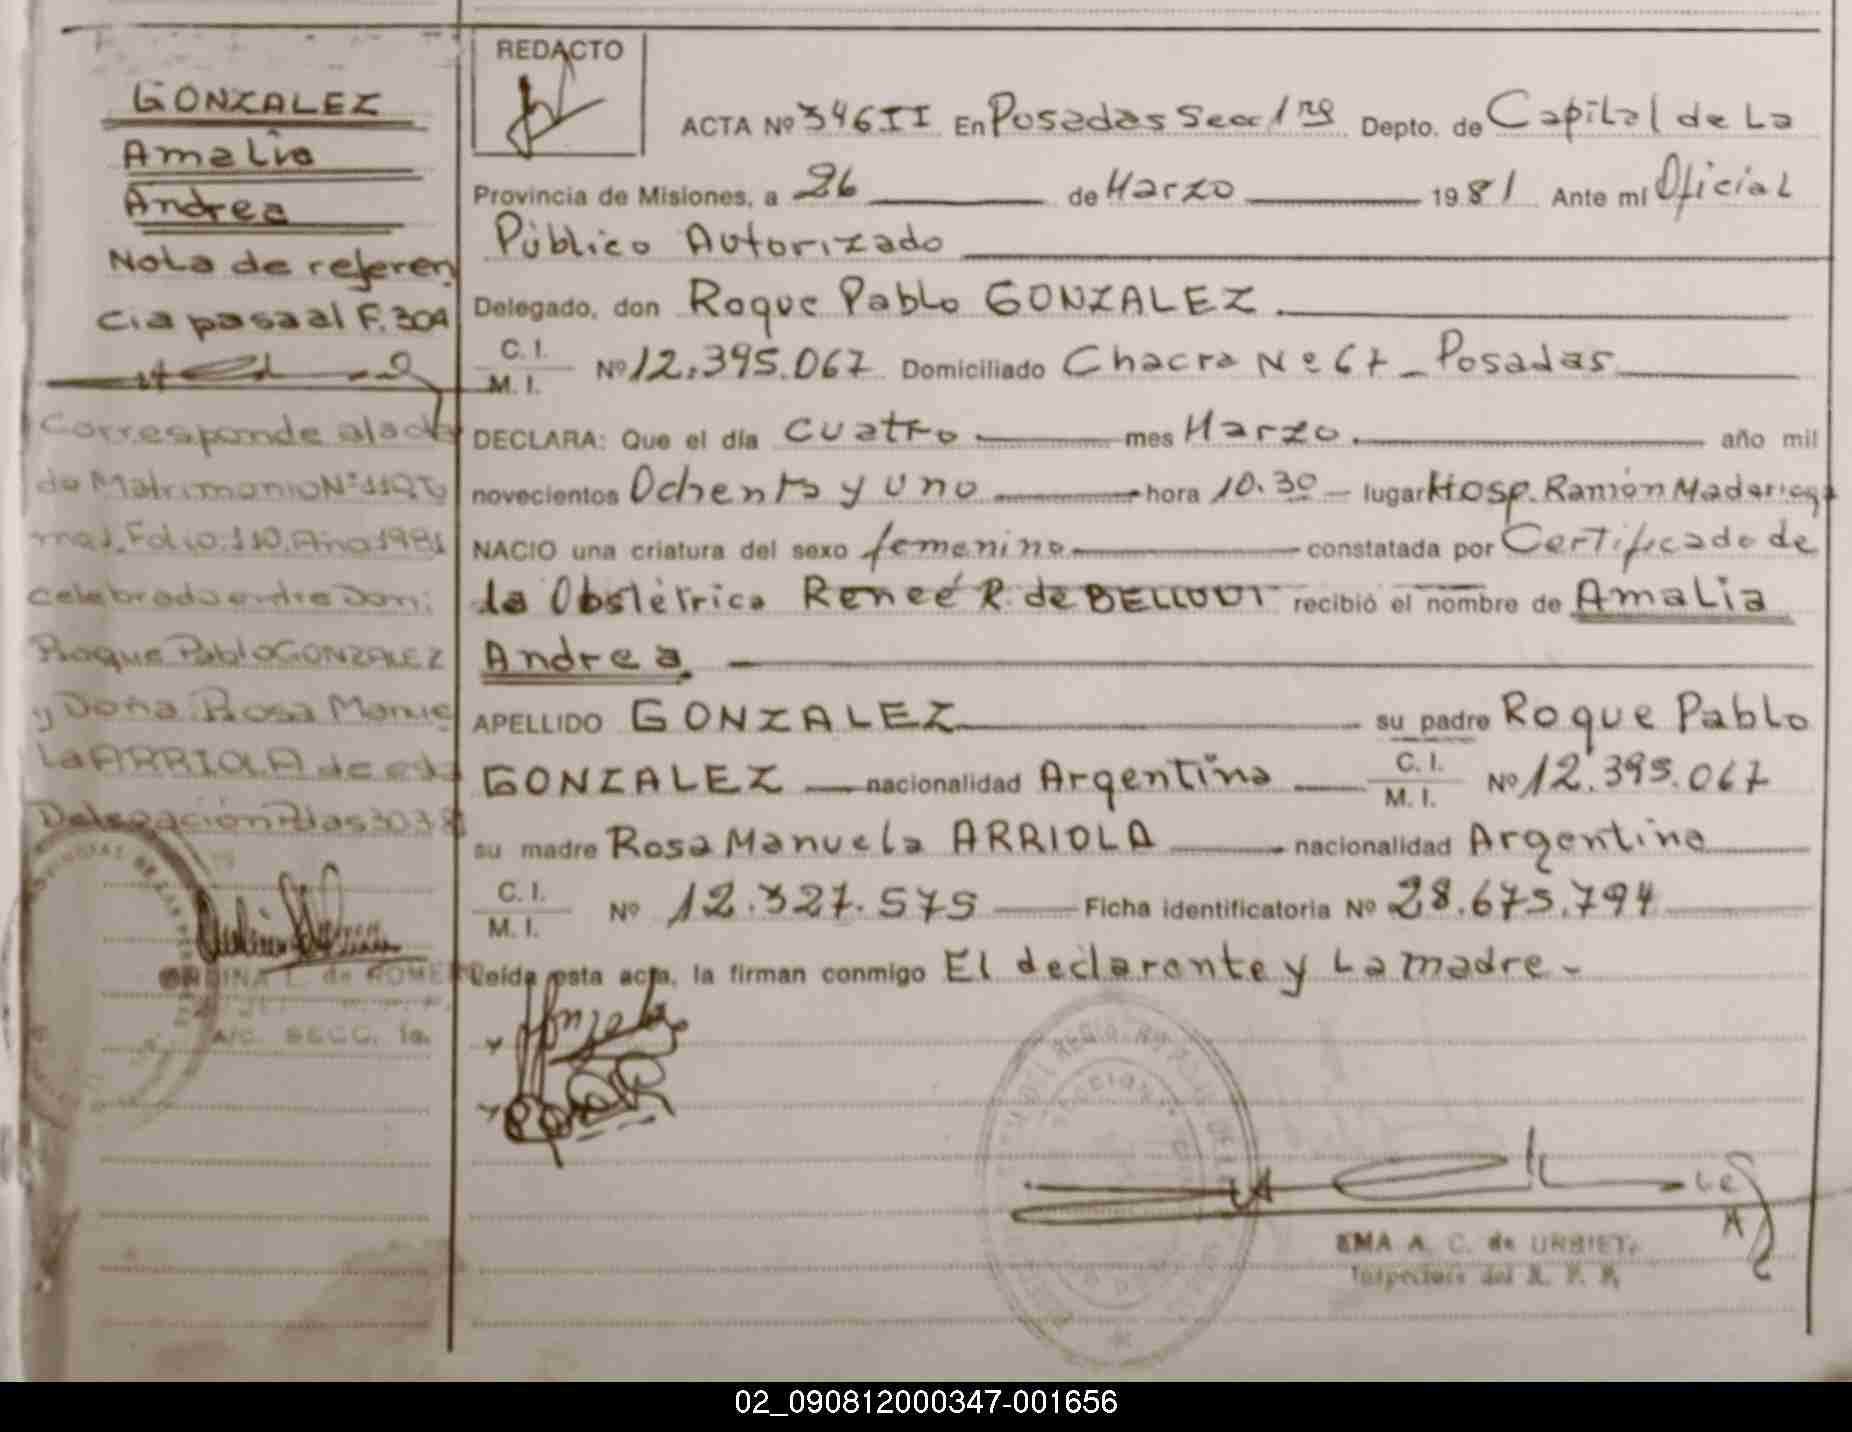 GONZALEZ
Amalia
Andrea
Nota de referen
cia pasa al F. 304
Corresponde al acta
de Matrimonio Nº 110
Folio 110. Año 1981
celebrado entre Don:
Roque Pablo GONZALEZ
y Doña: Rosa Manue
la ARRIOLA de esta
Delegación
de ROMER
A/C. SECC. 1a.
REDACTO
ACTA Nº 346 II En Posadas Secc 1ra Depto. de Capital de La
Provincia de Misiones, a 26 de Marzo 1981 Ante mí Oficial
Público Autorizado
Delegado, don Roque Pablo GONZALEZ
C. I.
M. I. Nº 12.395.067 Domiciliado Chacra Nº 67 - Posadas
DECLARA: Que el día cuatro mes Marzo año mil
novecientos Ochenta y uno hora 10.30 lugar Hosp. Ramón Madariaga
NACIO una criatura del sexo femenino constatada por Certificado de
la Obstétrica Reneé R. de recibió el nombre de Amalia
Andrea
APELLIDO GONZALEZ su padre Roque Pablo
GONZALEZ nacionalidad Argentina C. I.
M. I. Nº 12.395.067
su madre Rosa Manuela ARRIOLA nacionalidad Argentina
C. I.
M. I. Nº 12.327.575 Ficha identificatoria Nº 28.675.794
Leída esta acta, la firman conmigo El declarante y La madre -
EMA A. C. de URBIETA
Inspectora del R. P. P.
02_090812000347-001656